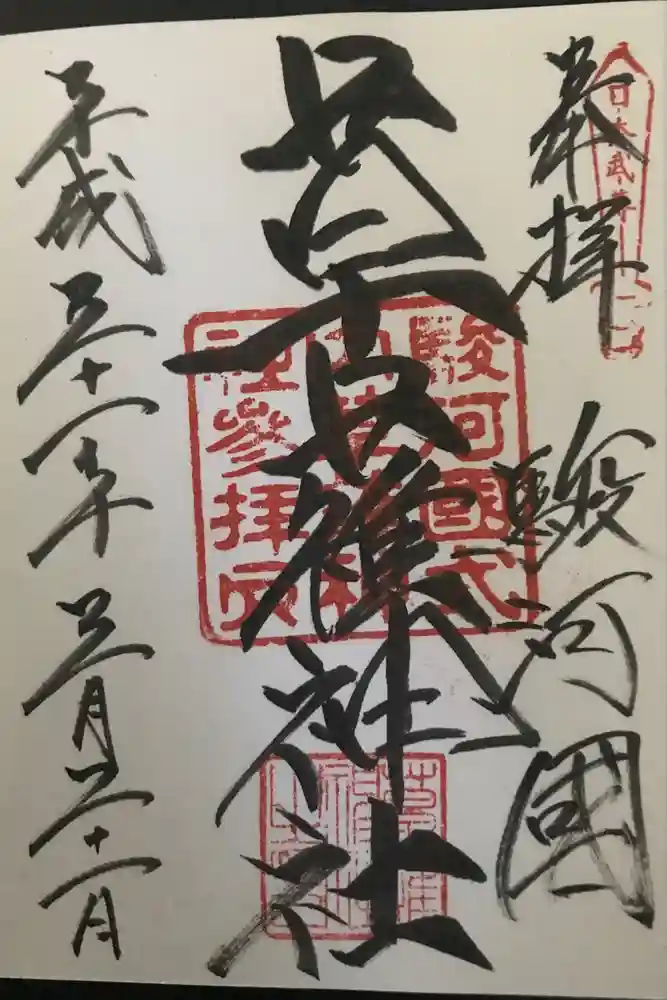 奉拝 駿河國
日本武尊
草薙神社
駿河國式
内草薙神
社參拝印
平成三十一年三月三十一日